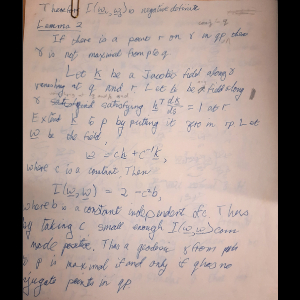 Therefore I(ω, ω) is negative definite
Lemma 2
If there is a point r on γ in qp then
γ is not maximal from p to q
Let K be a Jacobi field along γ
vanishing at q and r Let K be a field along
γ and satisfying K dK/ds = 1 at r
Extend K to p by putting it zero in rp Let
ω be the field
ω = cK + c⁻¹K,
where c is a constant. Then
I(ω, ω) = 2 - c²b,
where b is a constant independent of c. Thus
by taking c small enough I(ω, ω) can
made positive. Thus a geodesic γ from p to
q is maximal if and only if γ has no
conjugate points in qp